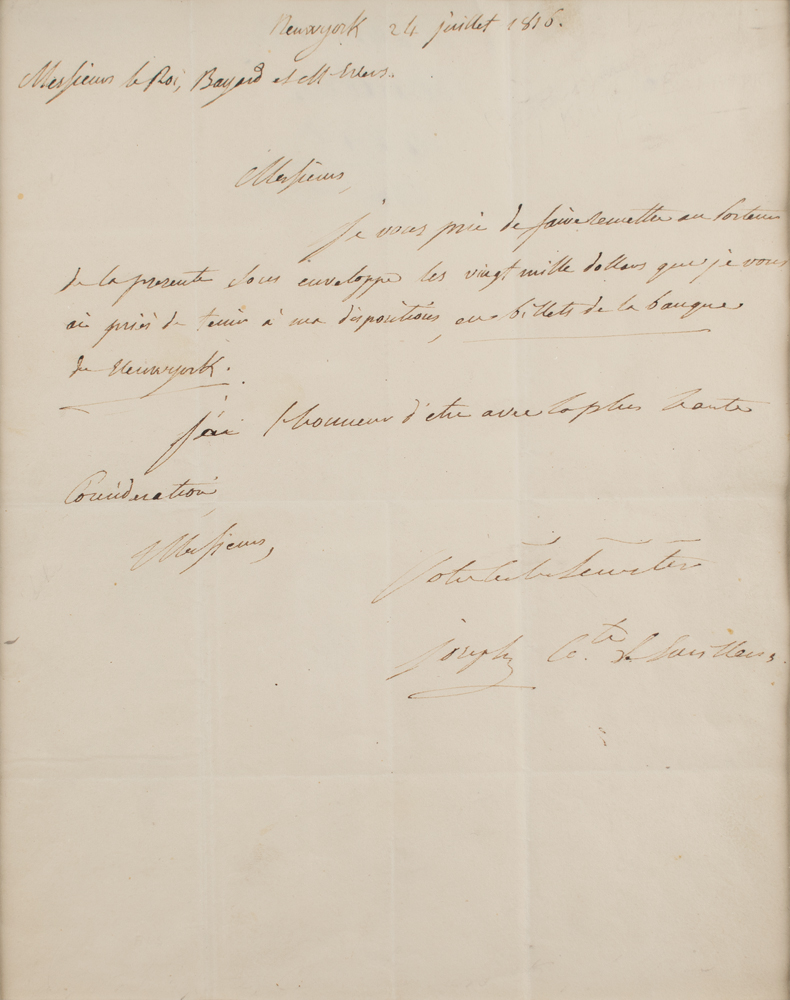 Neuwyork 24 juillet 1816.
Messieurs le Roi, Bayard et M Evers.
Messieurs,
je vous prie de faire remettre au porteur
de la presente sous enveloppe les vingt mille dollars que je vous
ai priés de tenir à ma disposition, en billets de la banque
de Neuwyork.
j'ai l'honneur d'etre avec la plus haute
Consideration,
Messieurs,
Votre
joseph Cte de Survilliers.